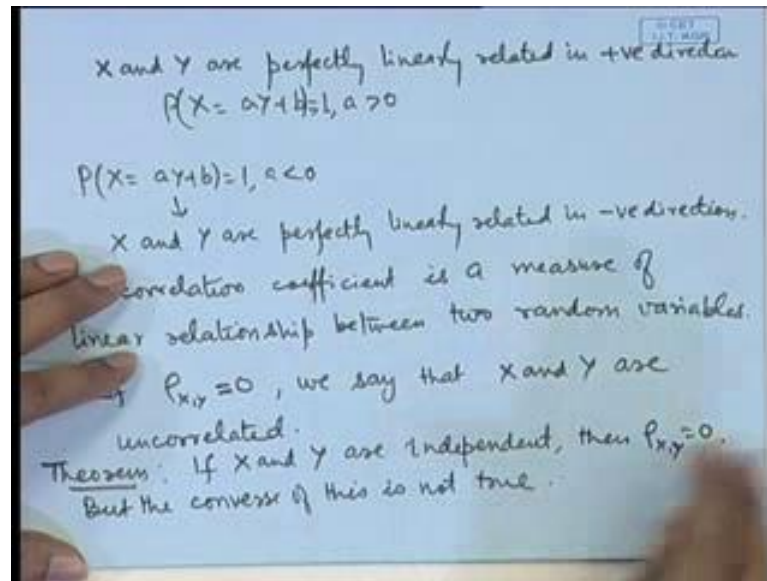 X and Y are perfectly linearly related in +ve direction
P(X = aY+b)=1, a>0
P(X= aY+b)=1, a<0
↓
X and Y are perfectly linearly related in -ve direction.
correlation coefficient is a measure of
linear relationship between two random variables.
ρx,y =0, we say that X and Y are
uncorrelated.
Theorem: If X and Y are independent, then ρx,y=0.
But the converse of this is not true.